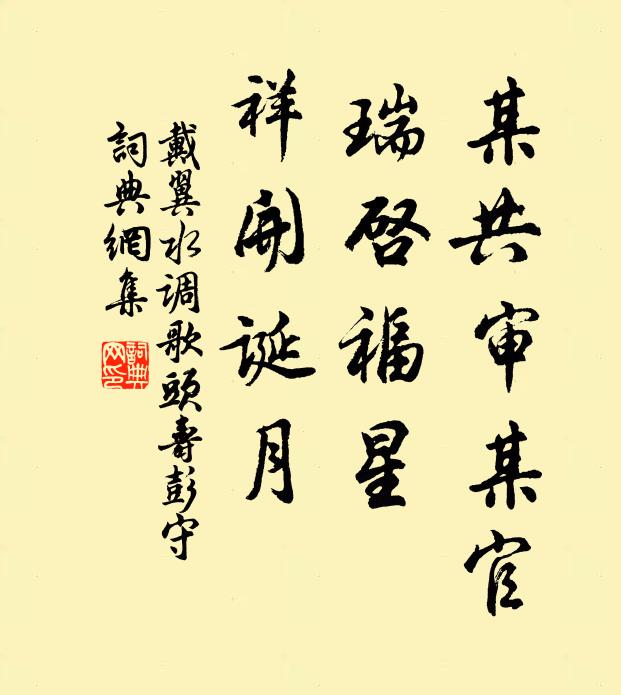 某共审某官
瑞启福星
祥开诞月
戴翼水调歌头寿彭守
词典網集
詞典網印